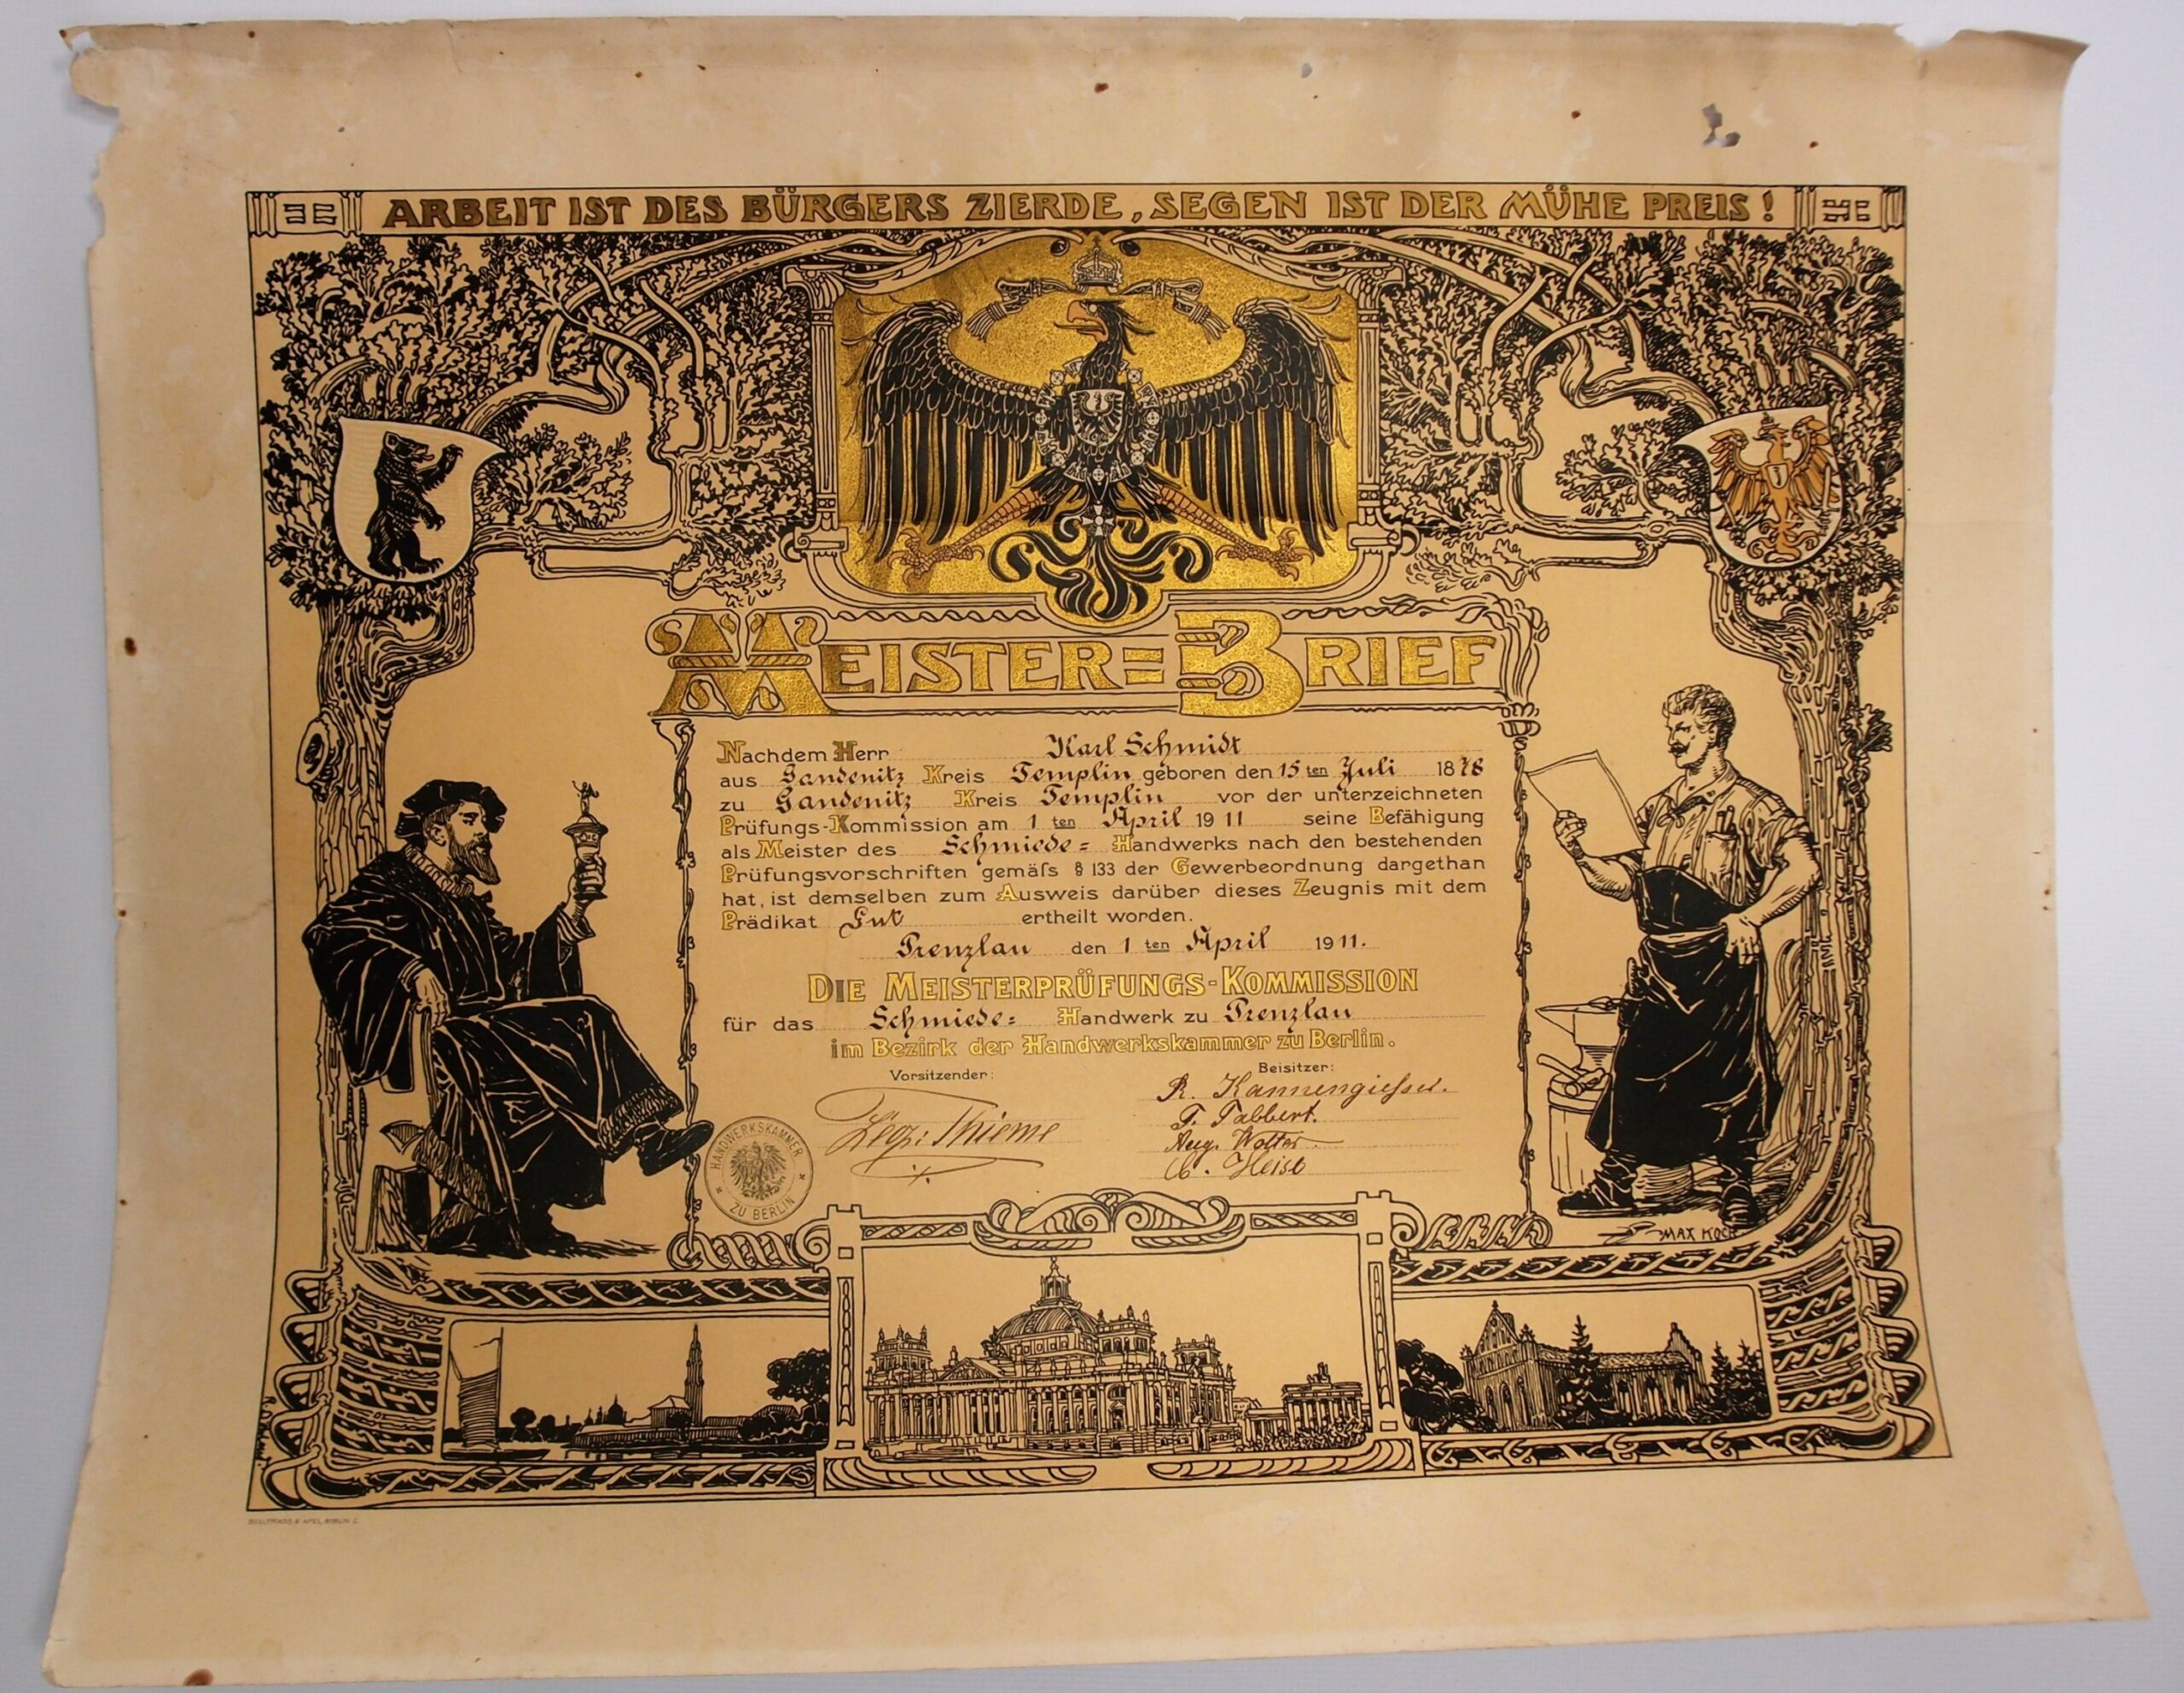 ARBEIT IST DES BÜRGERS ZIERDE, SEGEN IST DER MÜHE PREIS!
MEISTER=BRIEF
Nachdem Herr Karl Schmidt
aus Gandenitz Kreis Templin geboren den 15 ten Juli 1878
zu Gandenitz Kreis Templin vor der unterzeichneten
Prüfungs-Kommission am 1 ten April 1911 seine Befähigung
als Meister des Schmiede= Handwerks nach den bestehenden
Prüfungsvorschriften gemäſs § 133 der Gewerbeordnung dargethan
hat, ist demselben zum Ausweis darüber dieses Zeugnis mit dem
Prädikat Gut ertheilt worden.
Prenzlau den 1 ten April 1911.
DIE MEISTERPRÜFUNGS-KOMMISSION
für das Schmiede= Handwerk zu Prenzlau
im Bezirk der Handwerkskammer zu Berlin.
Vorsitzender: Beisitzer:
Thieme
R. Kannengiesser.
F. Tabbert.
Aug. Wolter
C. Heise
HANDWERKSKAMMER ZU BERLIN
MAX KOCH